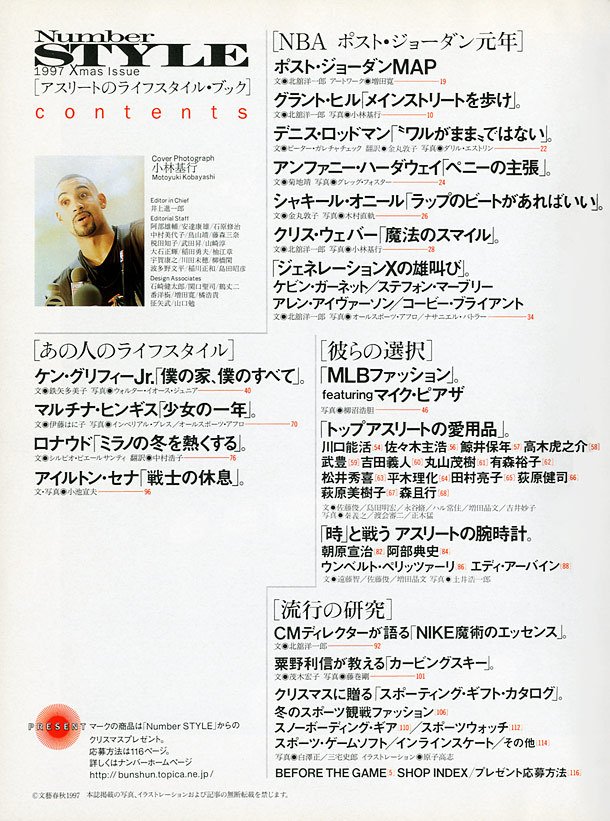 Number
STYLE
1997 Xmas Issue
[アスリートのライフスタイル・ブック]
contents
Cover Photograph
小林基行
Motoyuki Kobayashi
Editor in Chief
井上進一郎
Editorial Staff
阿部雄輔/安達康雄/石原修治
中村美代子/鳥山靖/藤森三奈
税田知子/武田昇/山崎淳
大石正輝/稲田勇夫/柚江章
宇賀康之/川田未穂/柳橋閑
波多野文平/稲川正和/島田昭彦
Design Associates
石崎健太郎/関口聖司/鶴丈二
番洋樹/増田寛/橘浩貴
征矢武/山口勉
[NBA ポスト・ジョーダン元年]
ポスト・ジョーダンMAP
文●北舘洋一郎 アートワーク●増田寛 19
グラント・ヒル「メインストリートを歩け」。
文●北舘洋一郎 写真●小林基行 10
デニス・ロッドマン「〝ワルがまま〟ではない」。
文●ピーター・ガレチャチェック 翻訳●金丸敦子 写真●ダリル・エストリン 22
アンファニー・ハーダウェイ「ペニーの主張」。
文●菊地靖 写真●グレッグ・フォスター 24
シャキール・オニール「ラップのビートがあればいい」。
文●金丸敦子 写真●木村直軌 26
クリス・ウェバー「魔法のスマイル」。
文●北舘洋一郎 写真●小林基行 28
「ジェネレーションXの雄叫び」。
ケビン・ガーネット/ステフォン・マーブリー
アレン・アイヴァーソン/コービー・ブライアント
文●北舘洋一郎 写真●オールスポーツ・アフロ/ナサニエル・バトラー 34
[あの人のライフスタイル]
ケン・グリフィーJr.「僕の家、僕のすべて」。
文●鉄矢多美子 写真●ウォルター・イオース・ジュニア 40
マルチナ・ヒンギス「少女の一年」。
文●伊藤はに子 写真●インペリアル・プレス/オールスポーツ・アフロ 70
ロナウド「ミラノの冬を熱くする」。
文●シルビオ・ピエールサンティ 翻訳●中村浩子 76
アイルトン・セナ「戦士の休息」。
文・写真●小池宣夫 96
[彼らの選択]
「MLBファッション」。
featuring マイク・ピアザ
写真●柳沼浩胆 46
「トップアスリートの愛用品」。
川口能活[54] 佐々木主浩[56] 鯨井保年[57] 高木虎之介[58]
武豊[59] 吉田義人[60] 丸山茂樹[61] 有森裕子[62]
松井秀喜[63] 平木理化[64] 田村亮子[65] 荻原健司[66]
萩原美樹子[67] 森且行[68]
文●佐藤俊/島田明宏/永谷脩/ハル常住/増田晶文/吉井妙子
写真●秦義之/渡会審二/正木猛
「時」と戦う アスリートの腕時計。
朝原宣治[82] 阿部典史[84]
ウンベルト・ペリッツァーリ[86] エディ・アーバイン[88]
文●遠藤智/佐藤俊/増田晶文 写真●土井浩一郎
[流行の研究]
CMディレクターが語る「NIKE魔術のエッセンス」。
文●北舘洋一郎 92
粟野利信が教える「カービングスキー」。
文●茂木宏子 写真●藤巻剛 101
クリスマスに贈る「スポーティング・ギフト・カタログ」。
冬のスポーツ観戦ファッション[106]
スノーボーディング・ギア[110]/スポーツウォッチ[112]
スポーツ・ゲームソフト/インラインスケート/その他[114]
写真●白澤正/三宅史郎 イラストレーション●原子高志
BEFORE THE GAME[5] SHOP INDEX/プレゼント応募方法[116]
PRESENT マークの商品は「Number STYLE」からの
クリスマスプレゼント。
応募方法は116ページ。
詳しくはナンバーホームページ
http://bunshun.topica.ne.jp/
©文藝春秋1997 本誌掲載の写真、イラストレーションおよび記事の無断転載を禁じます。